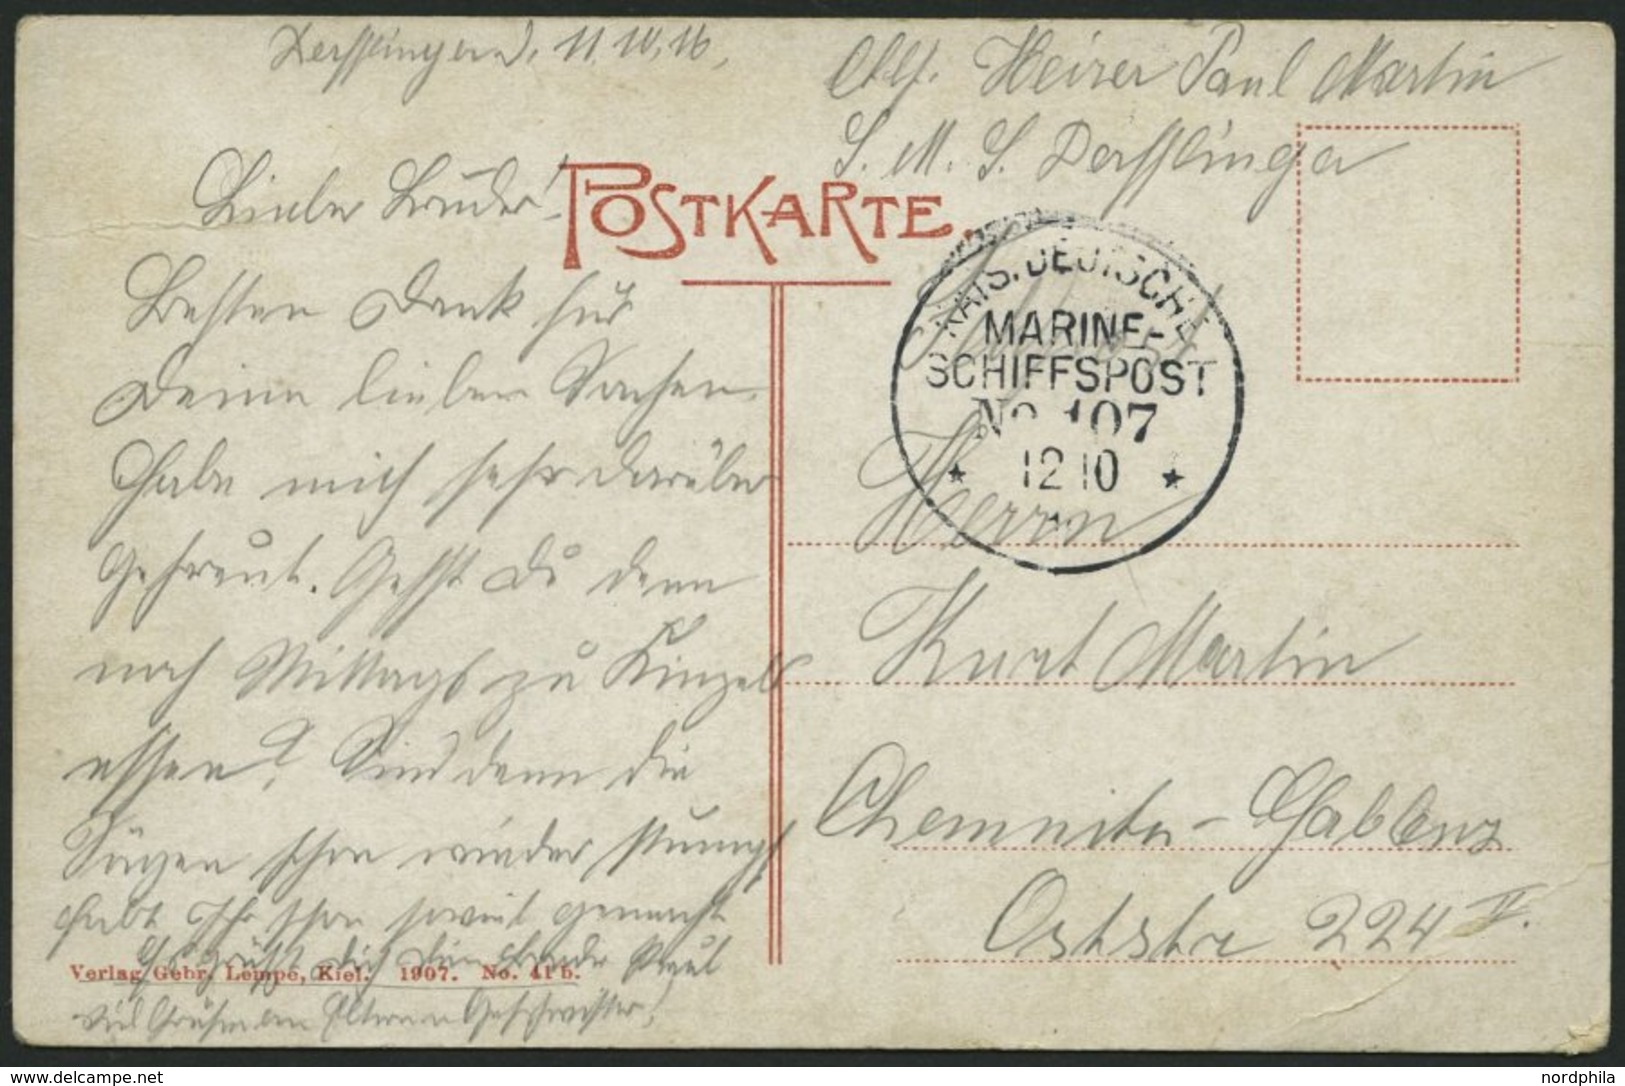 Derfflinger d. 11.10.16.
Heizer Paul Martin
S. M. S. Derfflinger
Lieber Bruder!
POSTKARTE.
Besten Dank für
Deine lieben Sachen.
Habe mich sehr darüber
gefreut. Gehst Du denn
noch Mittags zu Kinzels
essen? Sind denn die
Sägen schon wieder stumpf
habt Ihr schon soviel gemacht
Es grüßt Dich Dein Bruder Paul
Viel Grüße an Eltern u Geschwister!
Verlag Gebr. Lempe, Kiel. 1907. No. 41 b.
KAIS. DEUTSCHE
MARINE-
SCHIFFSPOST
No 107
* 12 10 *
Herrn
Kurt Martin
Chemnitz-Gablenz
Oststr 224 II.
akpool.de
nordphila